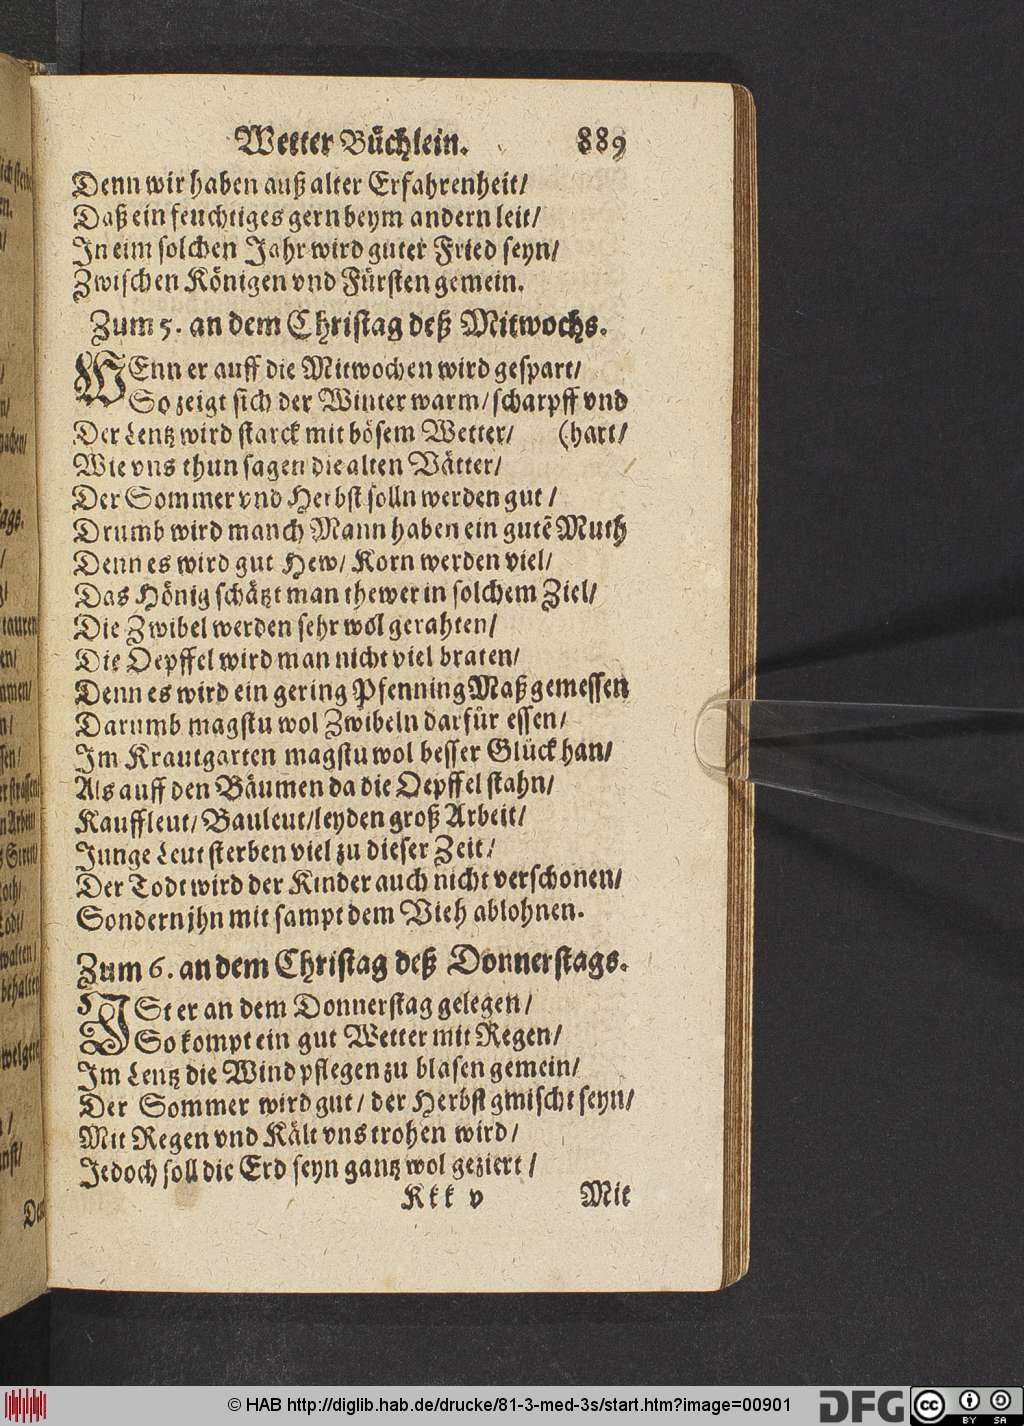 Wetter Büchlein. 889
Denn wir haben auß alter Erfahrenheit/
Daß ein feuchtiges gern beym andern leit/
In eim solchen Jahr wird guter Fried seyn/
Zwischen Königen vnd Fürsten gemein.
Zum 5. an dem Christag deß Mitwochs.
WEnn er auff die Mitwochen wird gespart/
So zeigt sich der Winter warm/ scharpff vnd
Der Lentz wird starck mit bösem Wetter/ (hart/
Wie vns thun sagen die alten Vätter/
Der Sommer vnd Herbst solln werden gut /
Drumb wird manch Mann haben ein gutẽ Muth
Denn es wird gut Hew/ Korn werden viel/
Das Hönig schätzt man thewer in solchem Ziel/
Die Zwibel werden sehr wol gerahten/
Die Oepffel wird man nicht viel braten/
Denn es wird ein gering Pfenning Maß gemessen
Darumb magstu wol Zwibeln darfür essen/
Im Krautgarten magstu wol besser Glück han/
Als auff den Bäumen da die Oepffel stahn/
Kauffleut/ Bauleut/ leyden groß Arbeit/
Junge Leut sterben viel zu dieser Zeit/
Der Todt wird der Kinder auch nicht verschonen/
Sondern jhn mit sampt dem Vieh ablohnen.
Zum 6. an dem Christag deß Donnerstags.
ISt er an dem Donnerstag gelegen/
So kompt ein gut Wetter mit Regen/
Im Lentz die Wind pflegen zu blasen gemein/
Der Sommer wird gut/ der Herbst gmischt seyn/
Mit Regen vnd Kält vns trohen wird/
Jedoch soll die Erd seyn gantz wol geziert /
Kkk v Mit
© HAB http://diglib.hab.de/drucke/81-3-med-3s/start.htm?image=00901
DFG
cc BY SA